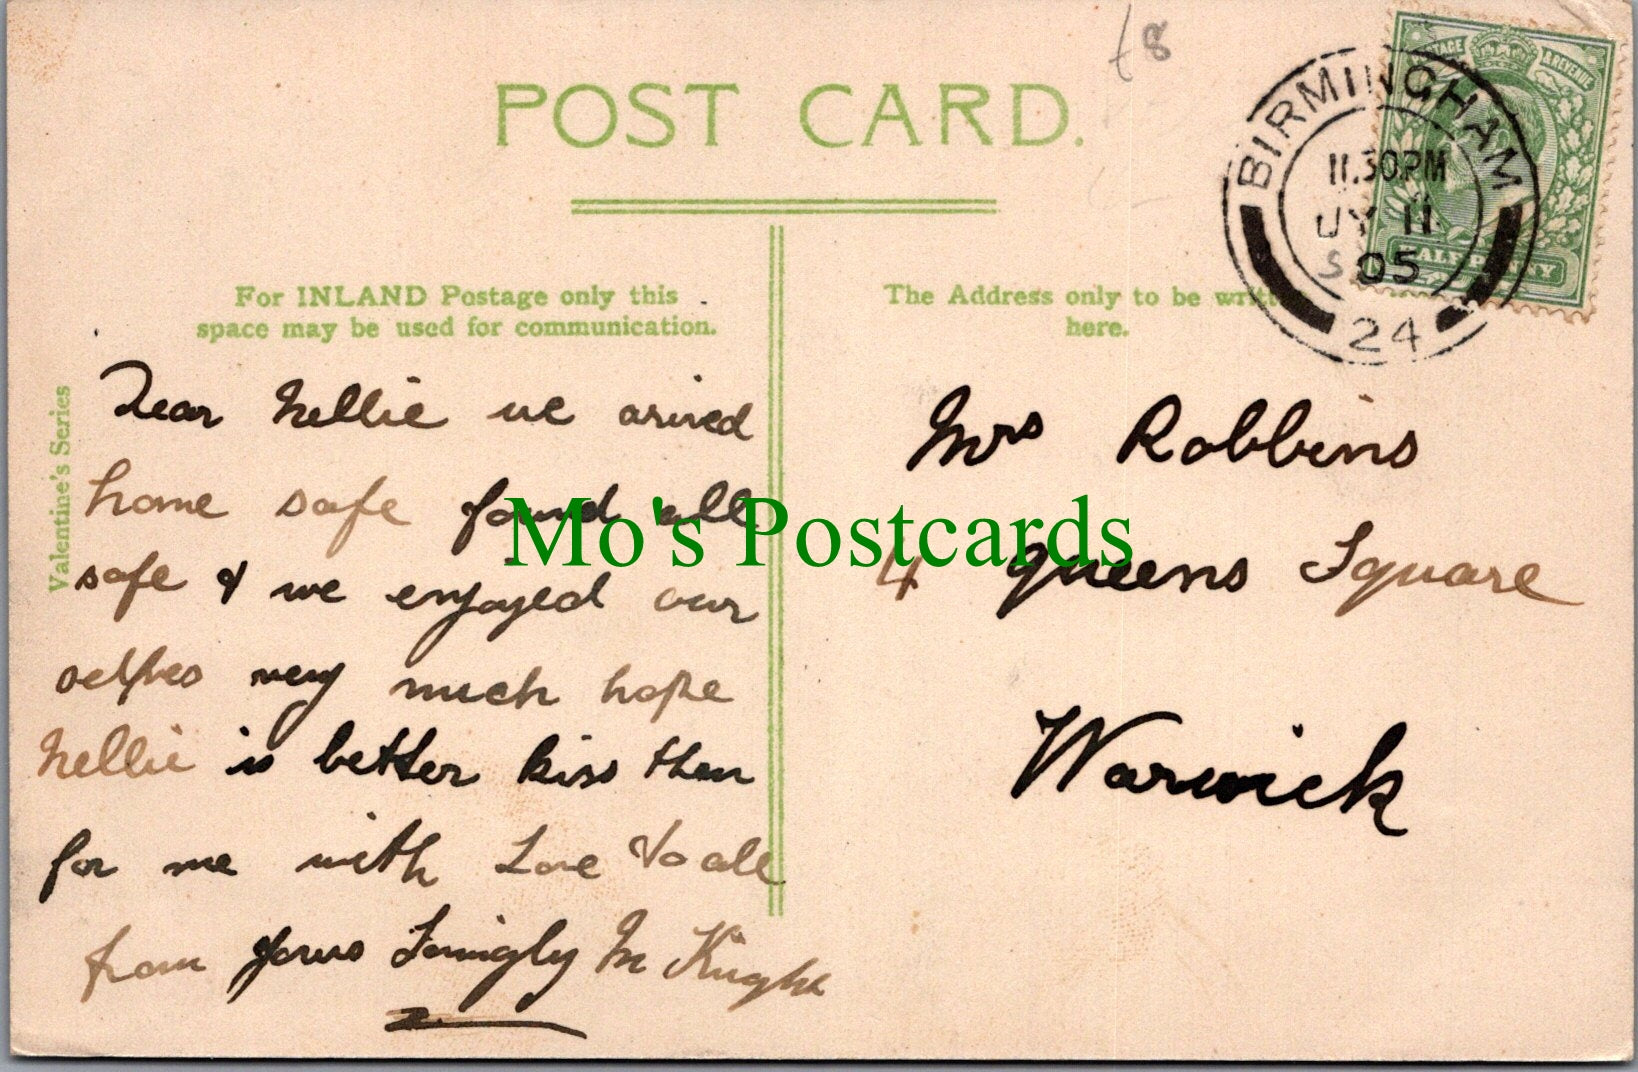 £8
POST CARD.
BIRMINGHAM
11.30PM
JY 11
05
24
POSTAGE & REVENUE
HALFPENNY
For INLAND Postage only this
space may be used for communication.
The Address only to be written
here.
Valentine's Series
Dear Nellie we arived
home safe found all
safe & we enjoyed our
selfves very much hope
Nellie is better kiss them
for me with Love to all
from yours Lovingly M Knight
Mrs Robbins
4 Queens Square
Warwick
Mo's Postcards